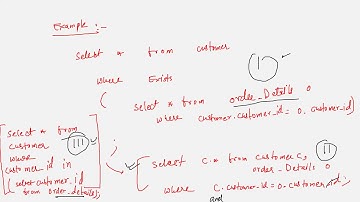 Example :-
Select * from customer
where Exists
I
( Select * from order_Details O
where customer.customer_id = O.customer_id)
[ select * from
customer
where
customer_id in
( select customer_id
from order_details) ]
III
;
[ Select C.* from customer C,
order_Details O
where C.customer_id = O.customer_id;
and
II